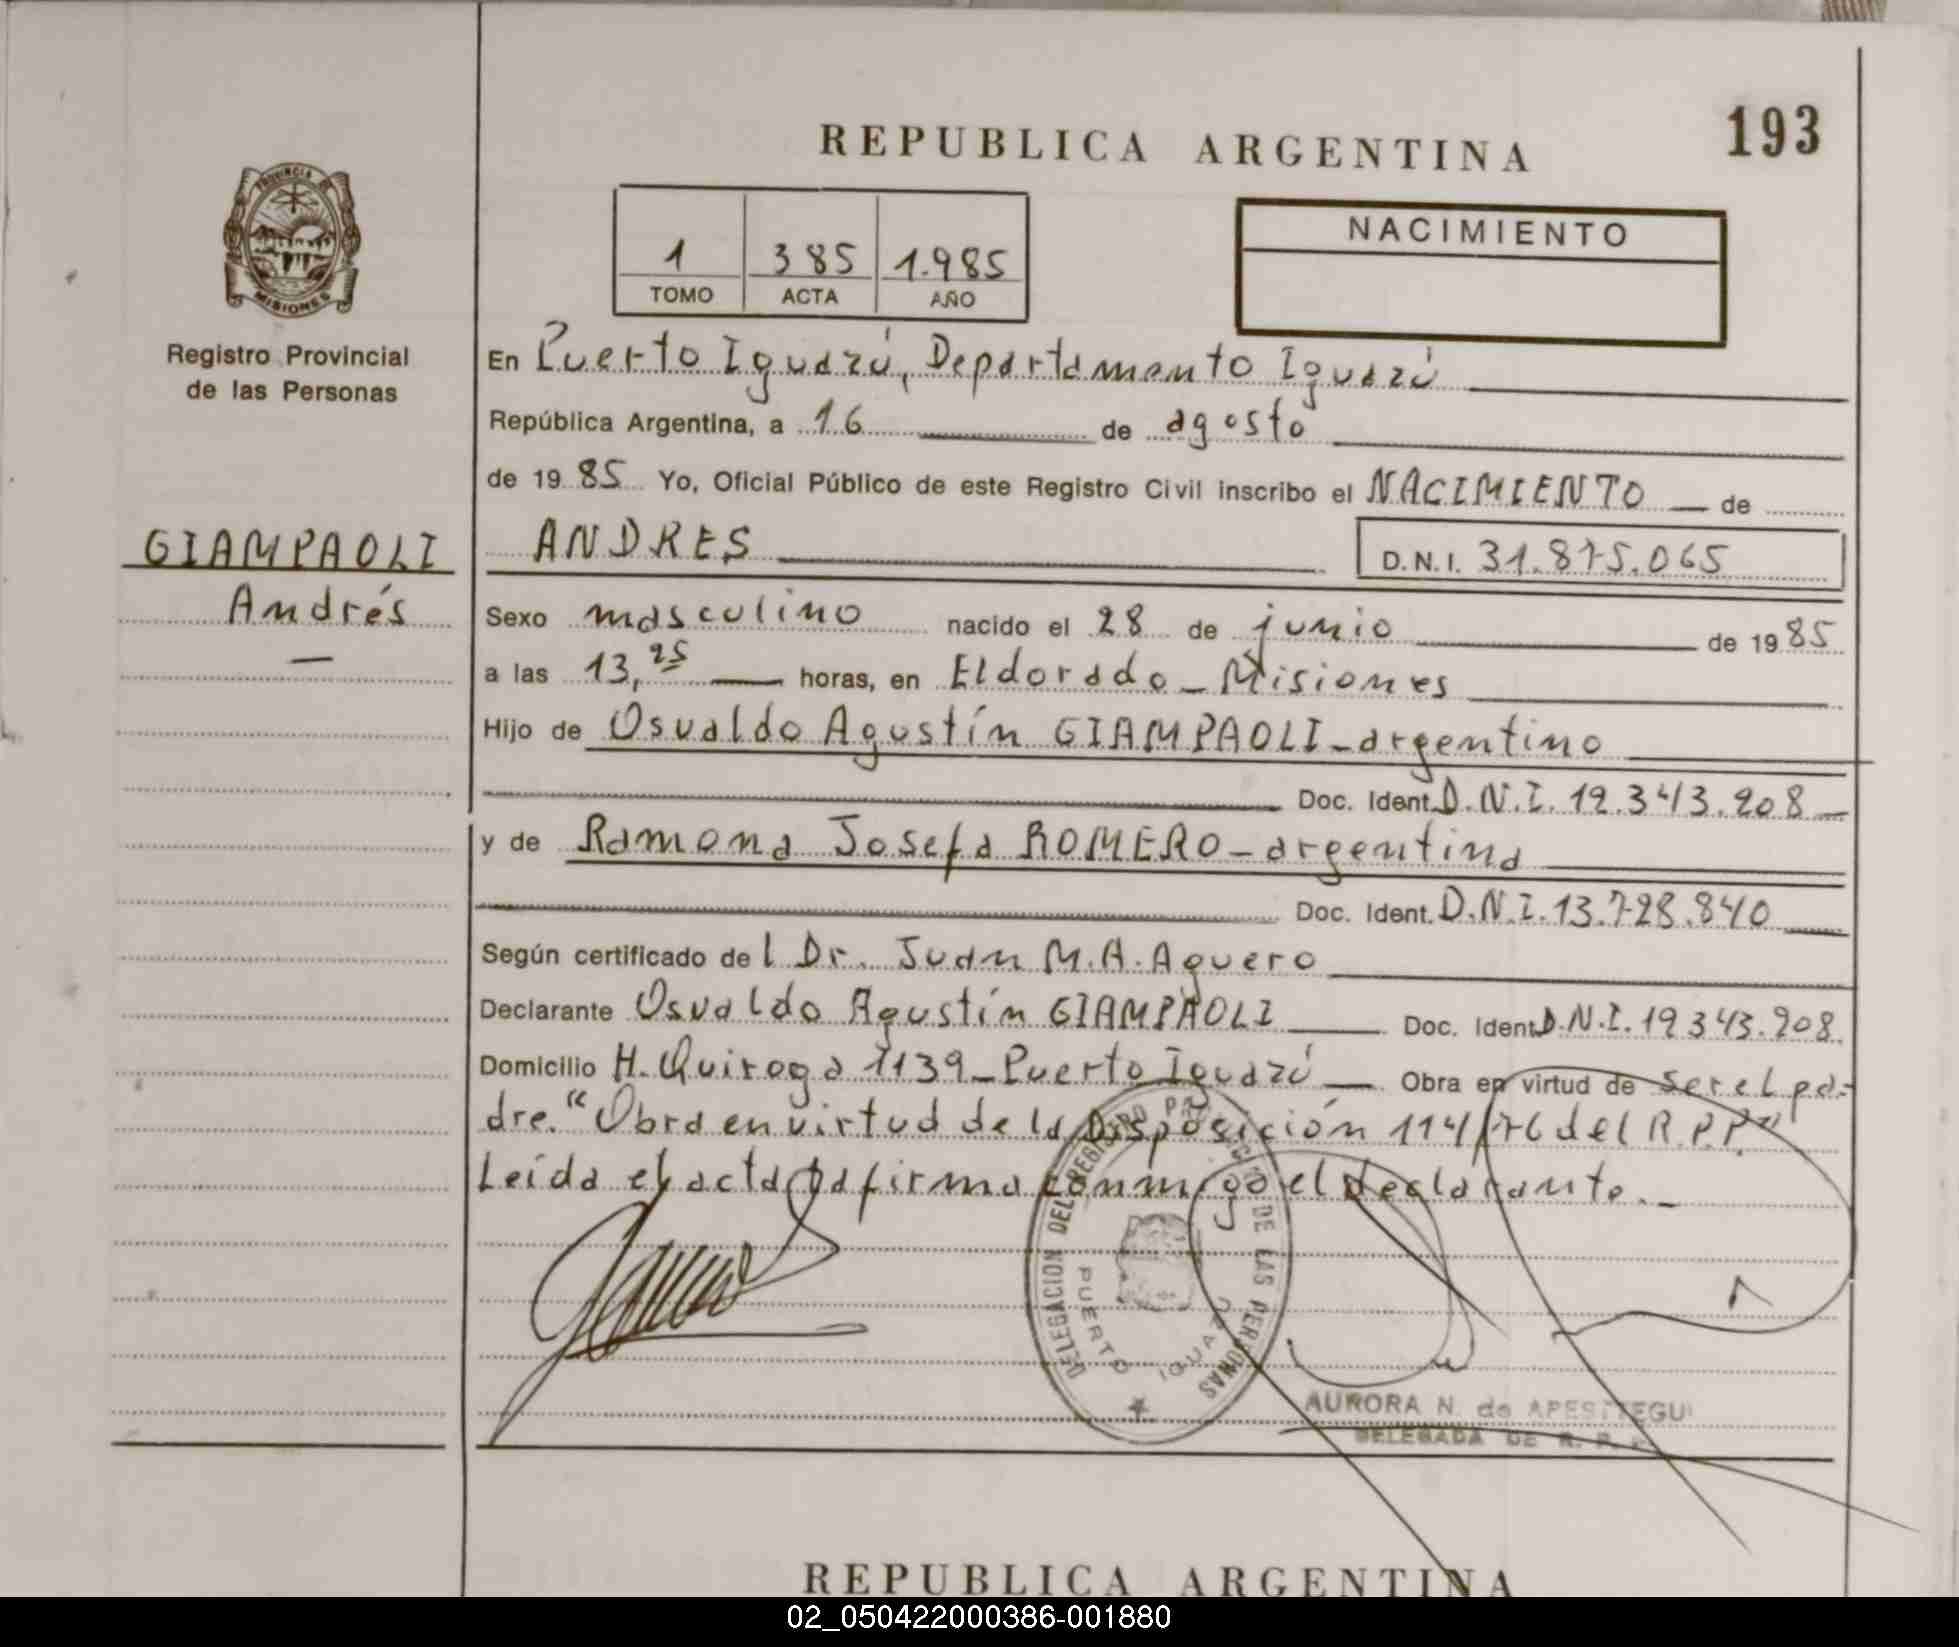 193
REPUBLICA ARGENTINA
PROVINCIA DE
MISIONES
Registro Provincial
de las Personas
1 385 1.985
TOMO ACTA AÑO
NACIMIENTO
En Puerto Iguazú, Departamento Iguazú
República Argentina, a 16 de agosto
de 1985 Yo, Oficial Público de este Registro Civil inscribo el NACIMIENTO de
GIAMPAOLI
Andrés
ANDRES
D.N.I. 31.875.065
Sexo masculino nacido el 28 de junio de 1985
a las 13,25 horas, en Eldorado - Misiones
Hijo de Osvaldo Agustín GIAMPAOLI - argentino
Doc. Ident. D.N.I. 12.343.208
y de Ramona Josefa ROMERO - argentina
Doc. Ident. D.N.I. 13.728.840
Según certificado del Dr. Juan M.A. Aguero
Declarante Osvaldo Agustín GIAMPAOLI Doc. Ident. D.N.I. 12.343.208.
Domicilio H. Quiroga 1139 - Puerto Iguazú Obra en virtud de ser el pa-
dre. "Obra en virtud de la Disposición 114/76 del R.P.P."
Leída el acta la firma conmigo el declarante.
DELEGACION DEL REGISTRO PROVINCIAL DE LAS PERSONAS
PUERTO IGUAZU
AURORA N. de APESTEGUI
DELEGADA DE R. P. P.
REPUBLICA ARGENTINA
02_050422000386-001880